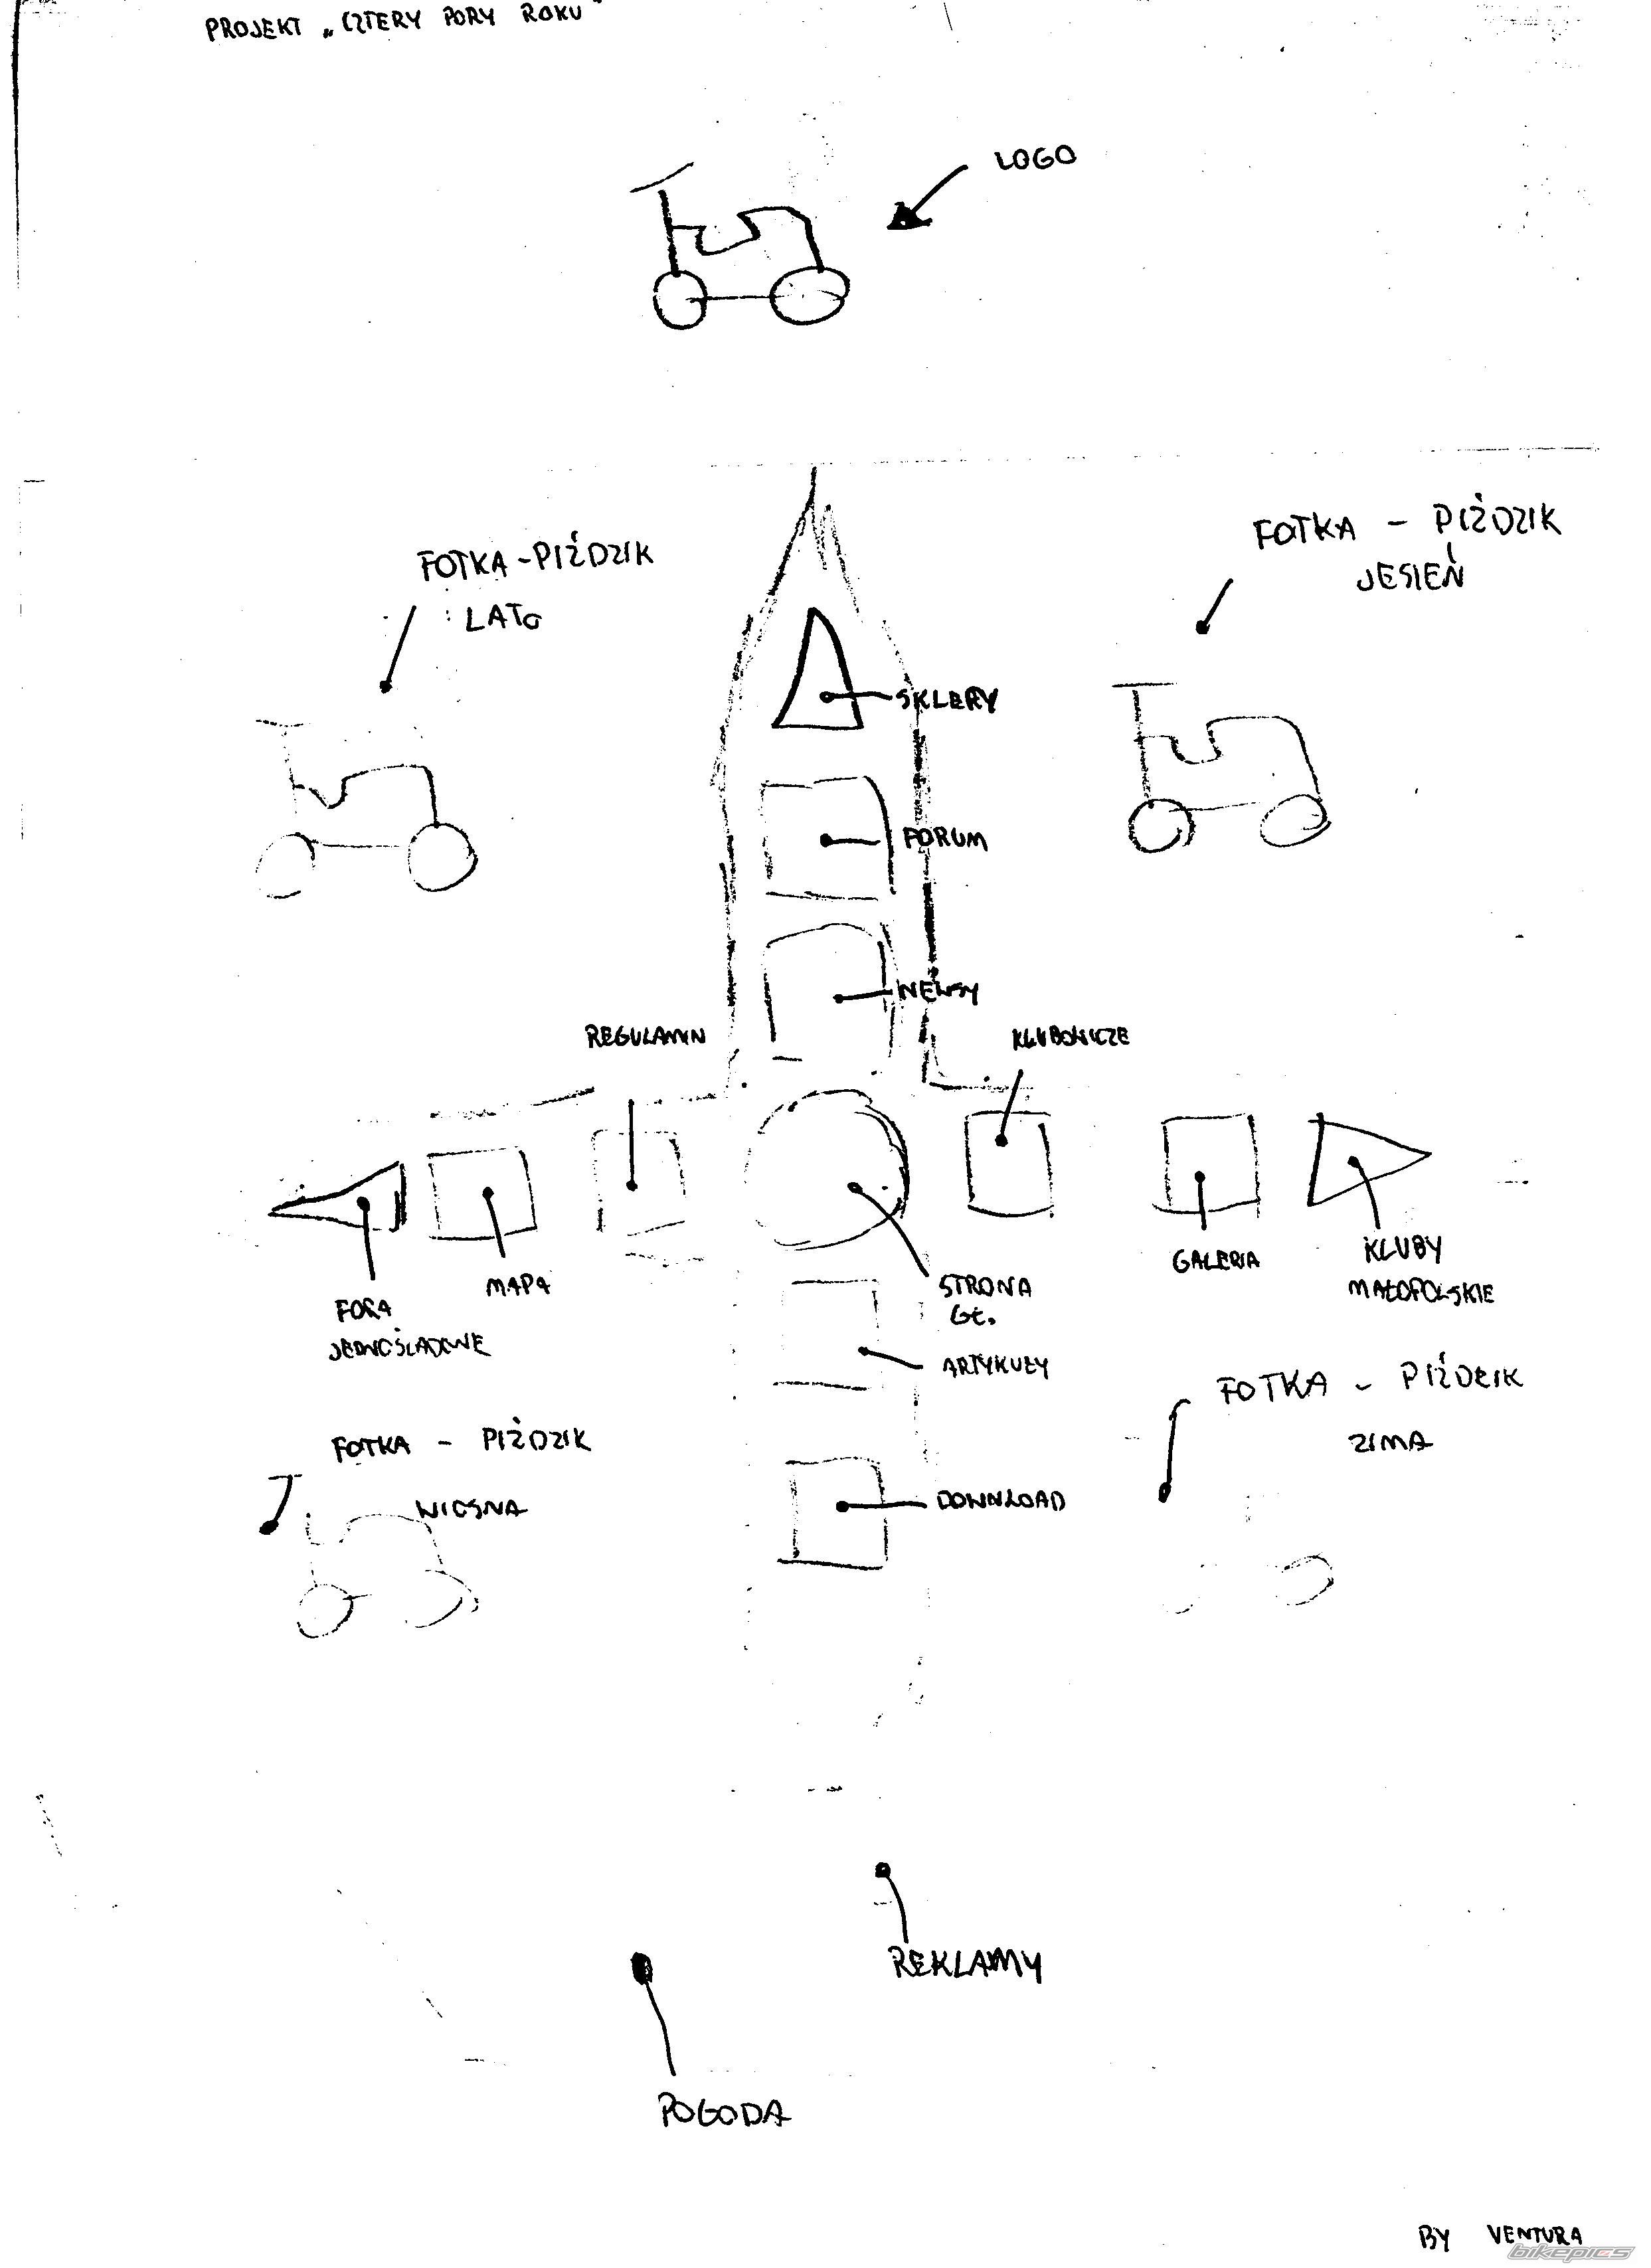 PROJEKT „CZTERY PORY ROKU"
LOGO
FOTKA - PIŹDZIK
LATO
FOTKA - PIŹDZIK
JESIEŃ
SKLEPY
FORUM
NEWSY
REGULAMIN
KLUBOWICZE
FORA
JEDNOŚLADOWE
MAPA
STRONA
GŁ.
GALERIA
KLUBY
MAŁOPOLSKIE
ARTYKUŁY
FOTKA - PIŹDZIK
WIOSNA
FOTKA - PIŹDZIK
ZIMA
DOWNLOAD
REKLAMY
POGODA
BY VENTURA
bikepics